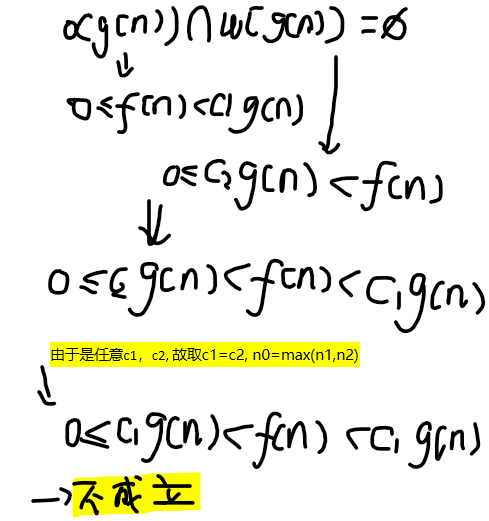 o(g(n))∩ω(g(n))=∅
↓
0≤f(n)<c1g(n)
↓
0≤c₂g(n)<f(n)
⇓
0≤c₂g(n)<f(n)<c₁g(n)
由于是任意c1，c2,故取c1=c2, n0=max(n1,n2)
↓
0≤c₁g(n)<f(n)<c₁g(n)
→不成立